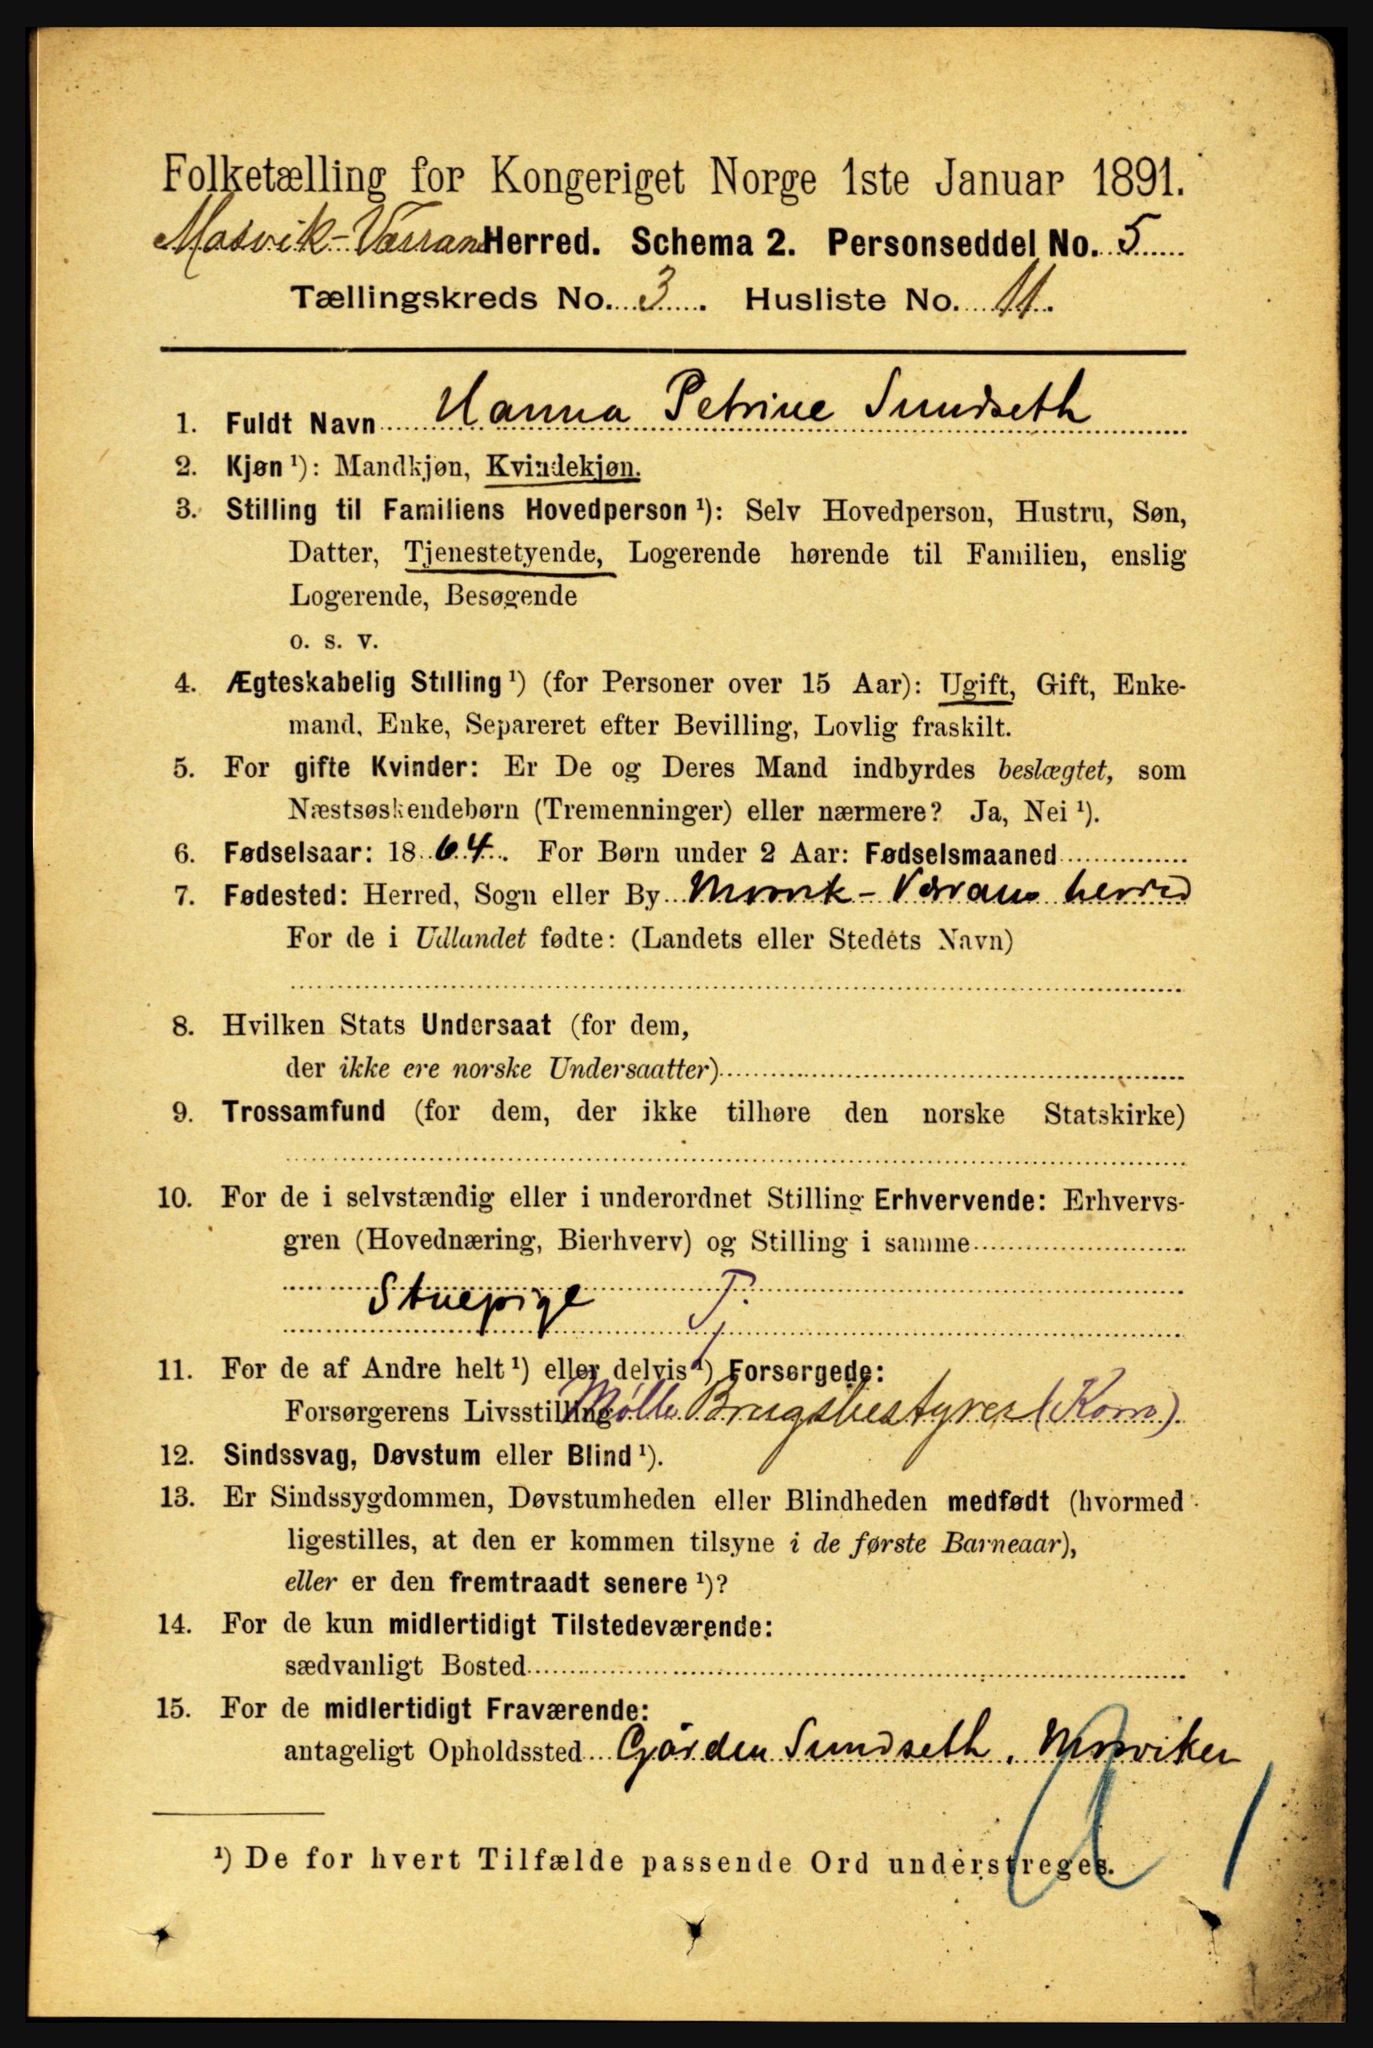 Folketælling for Kongeriget Norge 1ste Januar 1891.
Mosvik-Værran Herred. Schema 2. Personseddel No. 5
Tællingskreds No. 3. Husliste No. 11.
1. Fuldt Navn Hanna Petrine Sundseth
2. Kjøn ¹): Mandkjøn, Kvindekjøn.
3. Stilling til Familiens Hovedperson ¹): Selv Hovedperson, Hustru, Søn,
Datter, Tjenestetyende, Logerende hørende til Familien, enslig
Logerende, Besøgende
o. s. v.
4. Ægteskabelig Stilling ¹) (for Personer over 15 Aar): Ugift, Gift, Enke-
mand, Enke, Separeret efter Bevilling, Lovlig fraskilt.
5. For gifte Kvinder: Er De og Deres Mand indbyrdes beslægtet, som
Næstsøskendebørn (Tremenninger) eller nærmere? Ja, Nei ¹).
6. Fødselsaar: 1864. For Børn under 2 Aar: Fødselsmaaned
7. Fødested: Herred, Sogn eller By Mosvik - Værrans herred
For de i Udlandet fødte: (Landets eller Stedets Navn)
8. Hvilken Stats Undersaat (for dem,
der ikke ere norske Undersaatter)
9. Trossamfund (for dem, der ikke tilhøre den norske Statskirke)
10. For de i selvstændig eller i underordnet Stilling Erhvervende: Erhvervs-
gren (Hovednæring, Bierhverv) og Stilling i samme
Stuepige Tj.
11. For de af Andre helt ¹) eller delvis ¹) Forsørgede:
Forsørgerens Livsstilling Mølle Brugsbestyrer (Korn).
12. Sindssvag, Døvstum eller Blind ¹).
13. Er Sindssygdommen, Døvstumheden eller Blindheden medfødt (hvormed
ligestilles, at den er kommen tilsyne i de første Barneaar),
eller er den fremtraadt senere ¹)?
14. For de kun midlertidigt Tilstedeværende:
sædvanligt Bosted
15. For de midlertidigt Fraværende:
antageligt Opholdssted Gården Sundseth, Mosviken
¹) De for hvert Tilfælde passende Ord understreges.